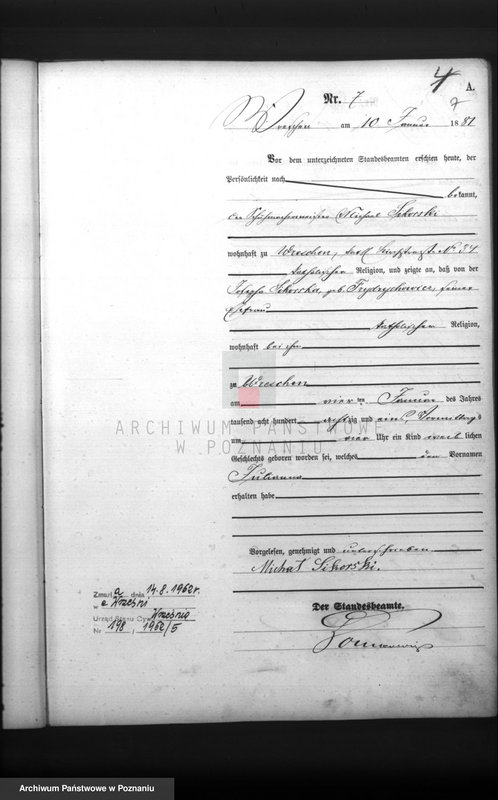 4
A.
Nr. 7
Wreschen am 10 Januar 1881
Vor dem unterzeichneten Standesbeamten erschien heute, der
Persönlichkeit nach
bekannt,
der Schuhmachermeister Michael Sikorski
wohnhaft zu Wreschen, No 34
katholischer Religion, und zeigte an, daß von der
Josepha Sikorska, geb. Frydrychowicz, seiner
Ehefrau
katholischer Religion,
wohnhaft bei ihm
zu Wreschen
am vier ten Januar des Jahres
tausend acht hundert achtzig und eins, Vormittags
um vier Uhr ein Kind weiblichen
Geschlechts geboren worden sei, welches den Vornamen
Julianna
erhalten habe
Vorgelesen, genehmigt und unterschrieben
Michał Sikorski.
Der Standesbeamte.
Zmarł a dnia 14.8.1962r.
w Wrześni
Urząd Stanu Cyw. Września
Nr 198 / 1962/5
ARCHIWUM PAŃSTWOWE
W POZNANIU
Archiwum Państwowe w Poznaniu